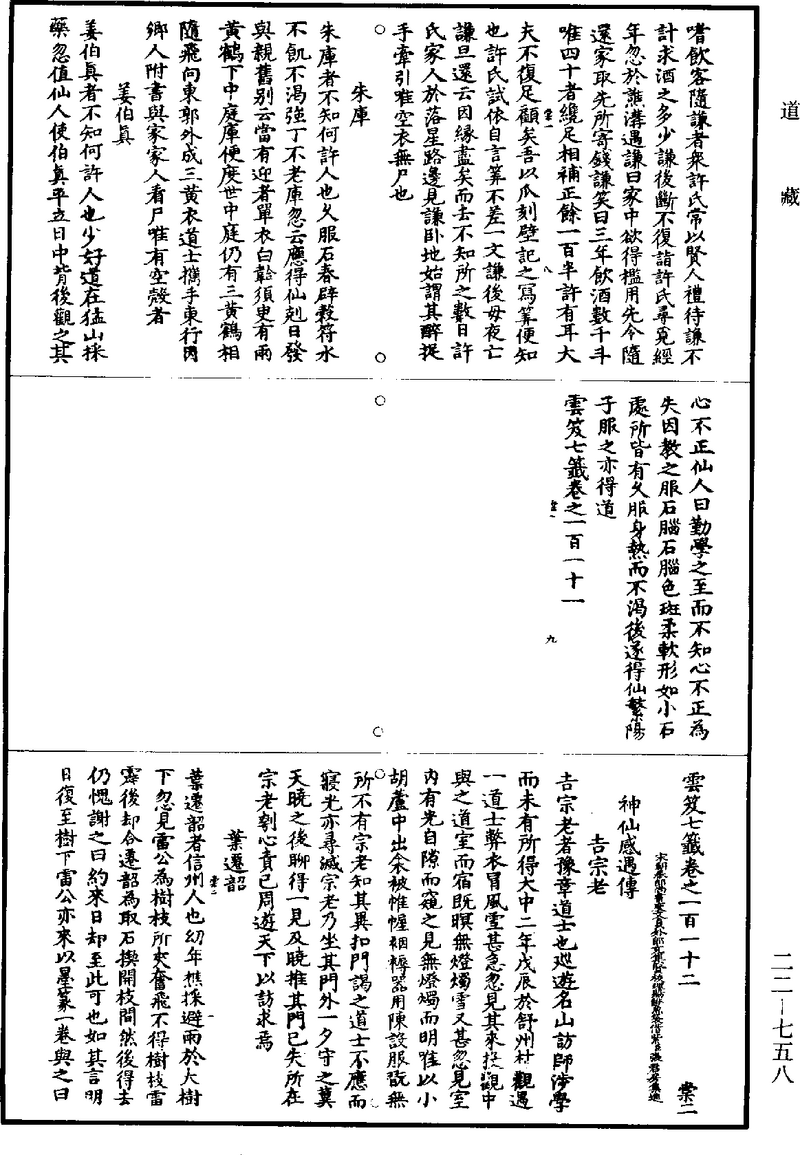 道藏
嗜飲客隨謙者衆許氏常以賢人禮待謙不
計求酒之多少謙後斷不復詣許氏尋覓經
年忽於譙溝遇謙曰家中欲得檻用先令隨
還家取先所寄錢謙笑曰三年飲酒數千斗
唯四十者纔足相補正餘一百半許有耳大
夫不復足顧矣吾以爪刻壁記之寫筭便知
也許氏試依自言筭不差一文謙後毋夜亡
謙旦還云因緣盡矣而去不知所之數日許
氏家人於落星路邊見謙卧地始謂其醉捉
手牽引唯空衣無尸也
朱庫
朱庫者不知何許人也久服石春辟穀符水
不飢不渴強丁不老庫忽云應得仙剋日發
與親舊別云當有迎者單衣白幹須臾有兩
黃鶴下中庭庫便度世中庭仍有三黃鶴相
隨飛向東郭外成三黃衣道士攜手東行因
鄉人附書與家家人看尸唯有空殼者
姜伯真
姜伯真者不知何許人也少好道在猛山採
藥忽值仙人使伯真平立日中背後觀之其
心不正仙人曰勤學之至而不知心不正為
失因教之服石腦石腦色斑柔軟形如小石
處所皆有久服身熱而不渴後遂得仙繁陽
子服之亦得道
雲笈七籤卷之一百一十一
九
雲笈七籤卷之一百一十二 棠二
神仙感遇傳
吉宗老
吉宗老者豫章道士也巡遊名山訪師涉學
而未有所得大中二年戊辰於舒州村觀遇
一道士弊衣冒風雪甚急忽見其來投觀中
與之道室而宿既暝無燈燭雪又甚忽見室
內有光自隙而窺之見無燈燭而明唯以小
胡蘆中出衾被帷幄裀褥器用陳設服翫無
所不有宗老知其異扣門謁之道士不應而
寢光亦尋滅宗老乃坐其門外一夕守之冀
天曉之後聊得一見及曉推其門已失所在
宗老刳心責己周遊天下以訪求焉
葉遷韶
葉遷韶者信州人也幼年樵採避雨於大樹
下忽見雷公為樹枝所夾奮飛不得樹枝雷
霹後却合遷韶為取石揳開枝間然後得去
仍愧謝之曰約來日却至此可也如其言明
日復至樹下雷公亦來以墨篆一卷與之曰
二二—七五八